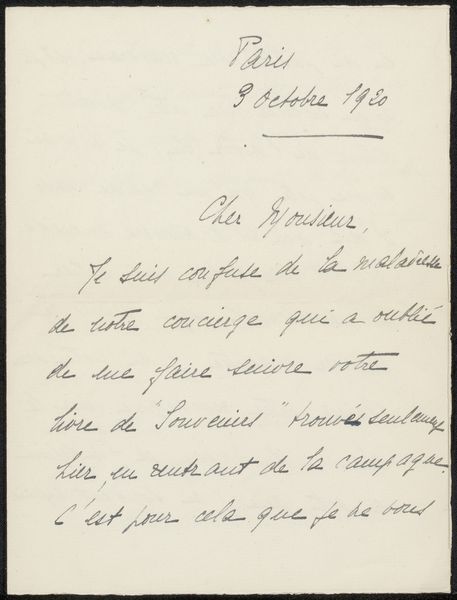 Paris
3 Octobre 1920
Cher Monsieur,
Je suis confuse de la maladresse
de notre concierge qui a oublié
de me faire suivre votre
livre de "Souvenirs" trouvé seulement
hier, en rentrant de la campagne.
C'est pour cela que je ne vous